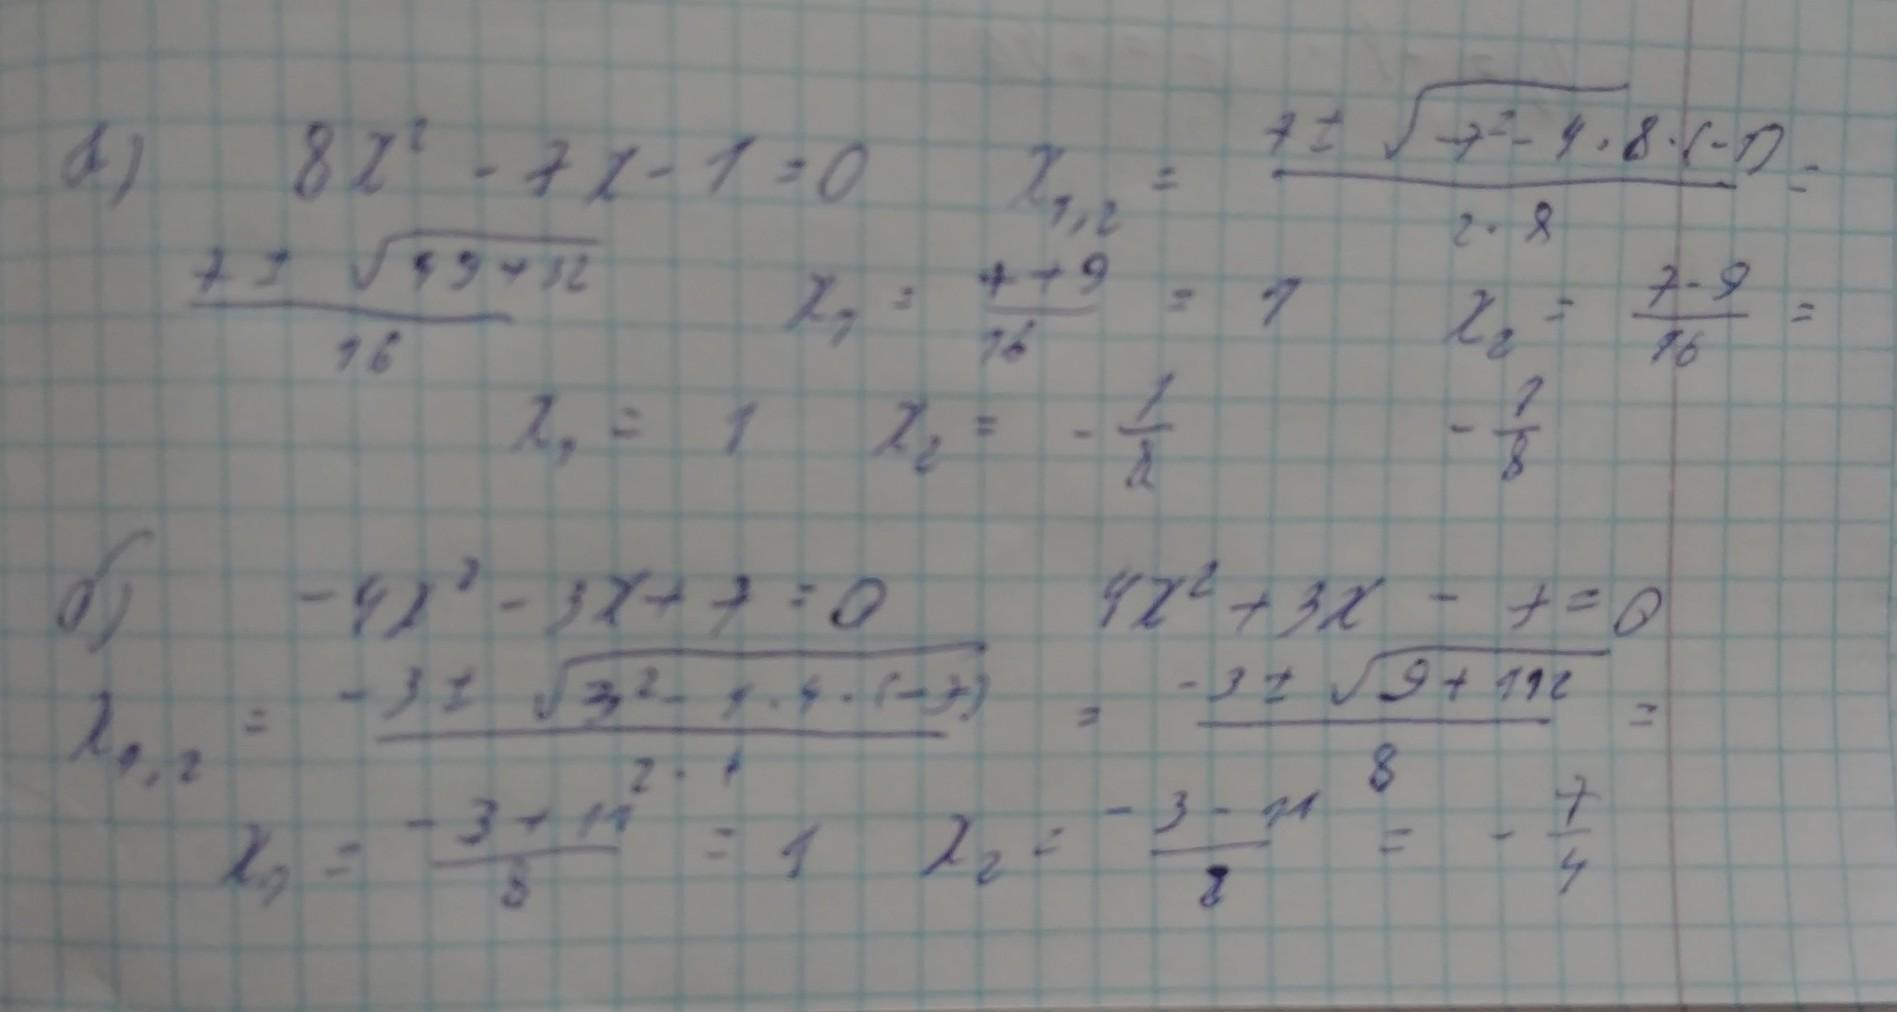 а) 8x² - 7x - 1 = 0 x₁,₂ = (7 ± √(-7² - 4 · 8 · (-1))) / (2 · 8) =
(7 ± √(49 + 32)) / 16 x₁ = (7 + 9) / 16 = 1 x₂ = (7 - 9) / 16 =
x₁ = 1 x₂ = - 1/8 - 1/8
б) -4x² - 3x + 7 = 0 4x² + 3x - 7 = 0
x₁,₂ = (-3 ± √(3² - 4 · 4 · (-7))) / (2 · 4) = (-3 ± √(9 + 112)) / 8 =
x₁ = (-3 + 11) / 8 = 1 x₂ = (-3 - 11) / 8 = - 7/4